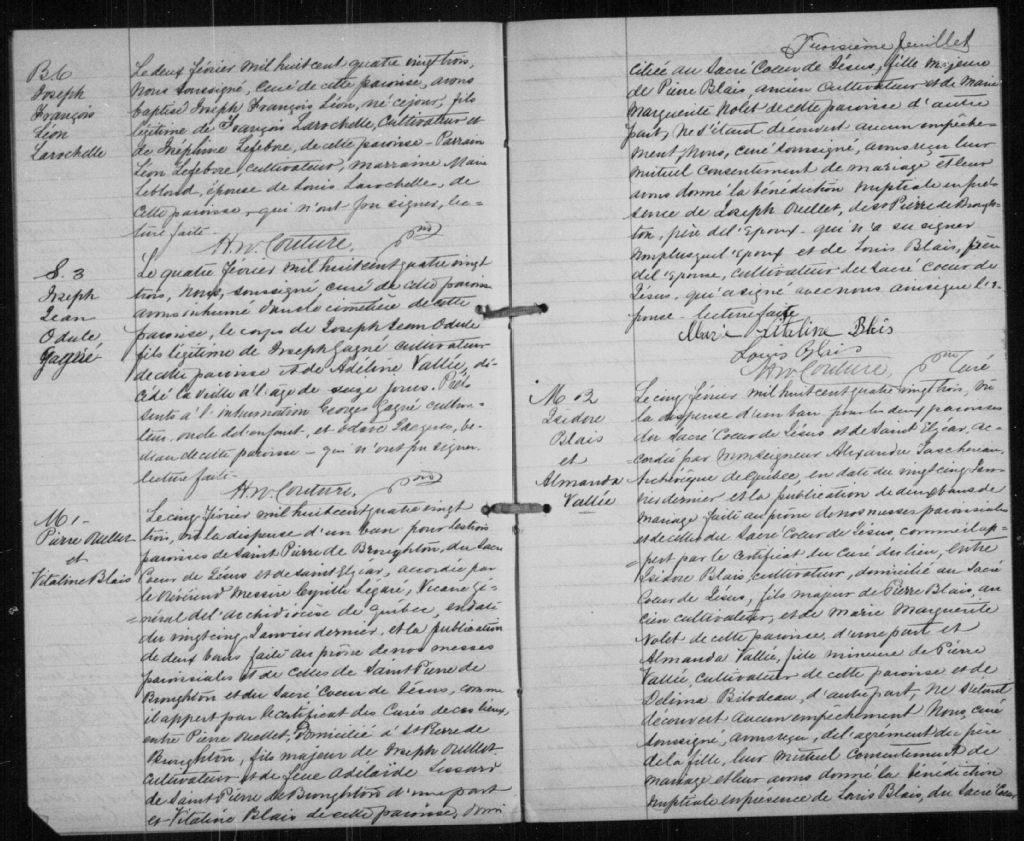 B 6
Joseph
François
Léon
Larochelle
Le deux février mil huit cent quatre vingt trois,
Nous soussigné, curé de cette paroisse, avons
baptisé Joseph François Léon, né ce jour, fils
légitime de François Larochelle, cultivateur et
de Joséphine Lefebvre, de cette paroisse - Parrain
Léon Lefebvre, cultivateur, marraine Marie
Leblond, épouse de Louis Larochelle, de
cette paroisse, qui n'ont su signer, lec-
ture faite -
H. W. Couture, Ptre
S. 3
Joseph
Jean
Odule
Gagné
Le quatre février mil huit cent quatre vingt
trois, Nous, soussigné curé de cette paroisse
avons inhumé dans le cimetière de cette
paroisse, le corps de Joseph Jean Odule
fils légitime de Joseph Gagné cultivateur
de cette paroisse et de Adéline Vallée, dé-
cédé la veille à l'âge de seize jours. Pré-
sents à l'inhumation Georges Gagné cultiva-
teur, oncle de l'enfant, et Odore Jacques, be-
deau de cette paroisse - qui n'ont pu signer
lecture faite -
H. W. Couture, Ptre
M 1 -
Pierre Ouellet
et
Vitaline Blais
Le cinq février mil huit cent quatre vingt
trois, vu la dispense d'un ban pour les trois
paroisses de Saint Pierre de Broughton, du Sacré
Coeur de Jésus et de Saint Elzéar, accordée par
le Révérend Messire Cyrille Légaré, Vicaire Gé-
néral de l'archidiocèse de Québec, en date
du vingt cinq Janvier dernier, et la publication
de deux bans faite au prône de nos messes
paroissiales et de celles de Saint Pierre de
Broughton et du Sacré Coeur de Jésus, comme
il appert par le certificat des Curés de ces lieux,
entre Pierre Ouellet, domicilié à St Pierre de
Broughton, fils majeur de Joseph Ouellet
cultivateur et de feue Adélaïde Lessard
de Saint Pierre de Broughton d'une part
et Vitaline Blais de cette paroisse, domi
Troisième feuillet
ciliée au Sacré Coeur de Jésus, fille majeure
de Pierre Blais, ancien cultivateur et de Marie
Marguerite Nolet de cette paroisse d'autre
part, ne s'étant découvert aucun empêche-
ment, Nous, curé soussigné, avons reçu leur
mutuel consentement de mariage et leur
avons donné la bénédiction nuptiale en pré-
sence de Joseph Ouellet, de St Pierre de Brough-
ton, père de l'Epoux - qui n'a su signer
non plus que l'Epoux et de Louis Blais, frère
de l'Epouse, cultivateur du Sacré Coeur de
Jésus, qui a signé avec nous ainsi que l'E-
pouse - lecture faite
Marie Vitaline Blais
Louis Blais
H. W. Couture, Ptre Curé
M 2
Isidore
Blais
et
Almanda
Vallée
Le cinq février mil huit cent quatre vingt trois, vu
la dispense d'un ban pour les deux paroisses
du Sacré Coeur de Jésus et de Saint Elzéar, ac-
cordée par Monseigneur Alexandre Taschereau,
Archevêque de Québec, en date du vingt cinq Jan-
vier dernier et la publication de deux bans de
mariage faite au prône de nos messes paroissiales
et de celles du Sacré Coeur de Jésus, comme il ap-
pert par le certificat du curé du lieu, entre
Isidore Blais, cultivateur, domicilié au Sacré
Coeur de Jésus, fils majeur de Pierre Blais, an
cien cultivateur, et de Marie Marguerite
Nolet de cette paroisse, d'une part et
Almanda Vallée, fille mineure de Pierre
Vallée, cultivateur de cette paroisse et de
Delima Bilodeau, d'autre part, ne s'étant
découvert aucun empêchement Nous, curé
soussigné, avons reçu, de l'agrément du père
de la fille, leur mutuel consentement de
mariage et leur avons donné la bénédiction
nuptiale en présence de Louis Blais, du Sacré Coeur,